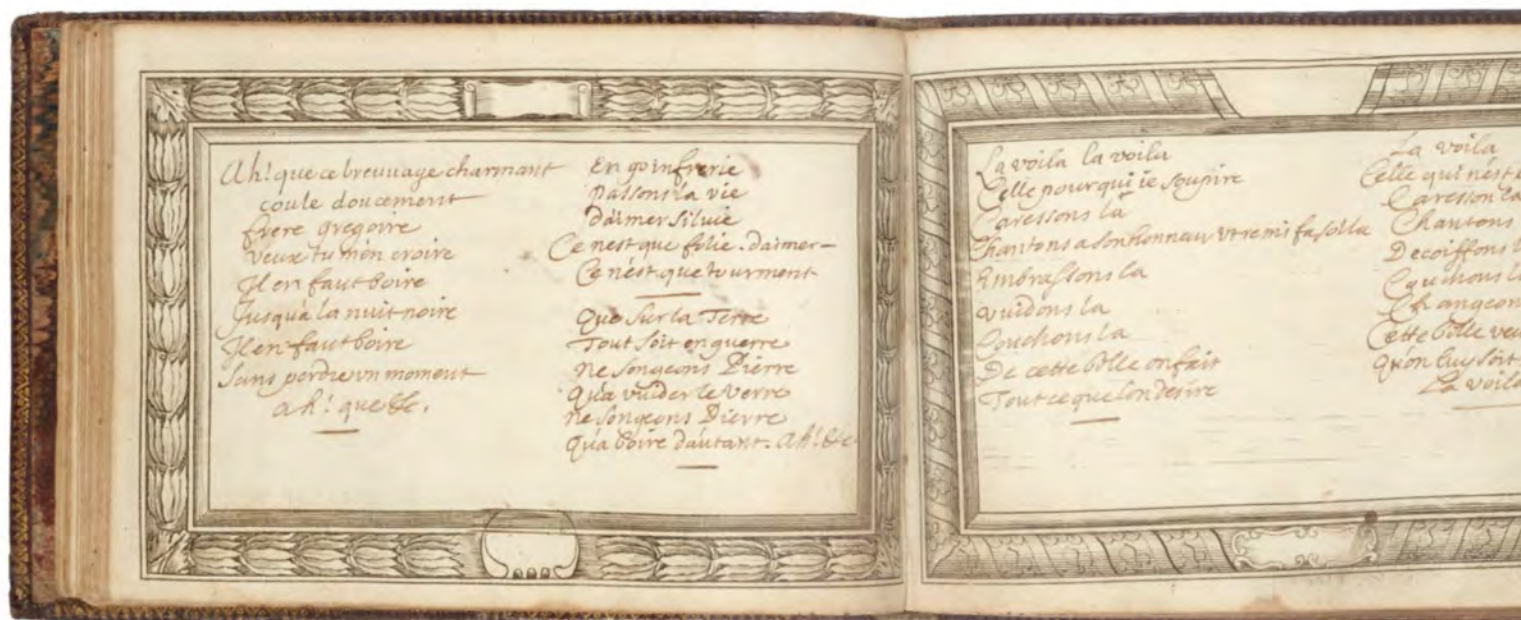 Ah! que ce breuuage charmant
coule doucement
frere gregoire
veux tu m'en croire
Il en faut boire
Jusqu'a la nuit noire
Il en faut boire
Sans perdre vn moment
Ah! que &c.
En goinfrerie
Passons la vie
D'aimer Siluie
Ce n'est que folie. d'aimer -
Ce n'est que tourment
Que sur la Terre
Tout soit en guerre
Ne songeons Pierre
Qu'a vuider le verre
Ne songeons Pierre
Qu'a boire d'autant. Ah! &c.
La voila la voila
Celle pour qui ie soupire
Caressons la
Chantons a son honneur vt re mi fa sol la
Embrassons la
vuidons la
Couchons la
De cette bille on fait
Tout ce que l'on desire
La voila
Celle qui n'est
Caresson la
Chantons
Decoiffons
Couchons
Changeon
Cette bille
Qu'on luy soit
La voila